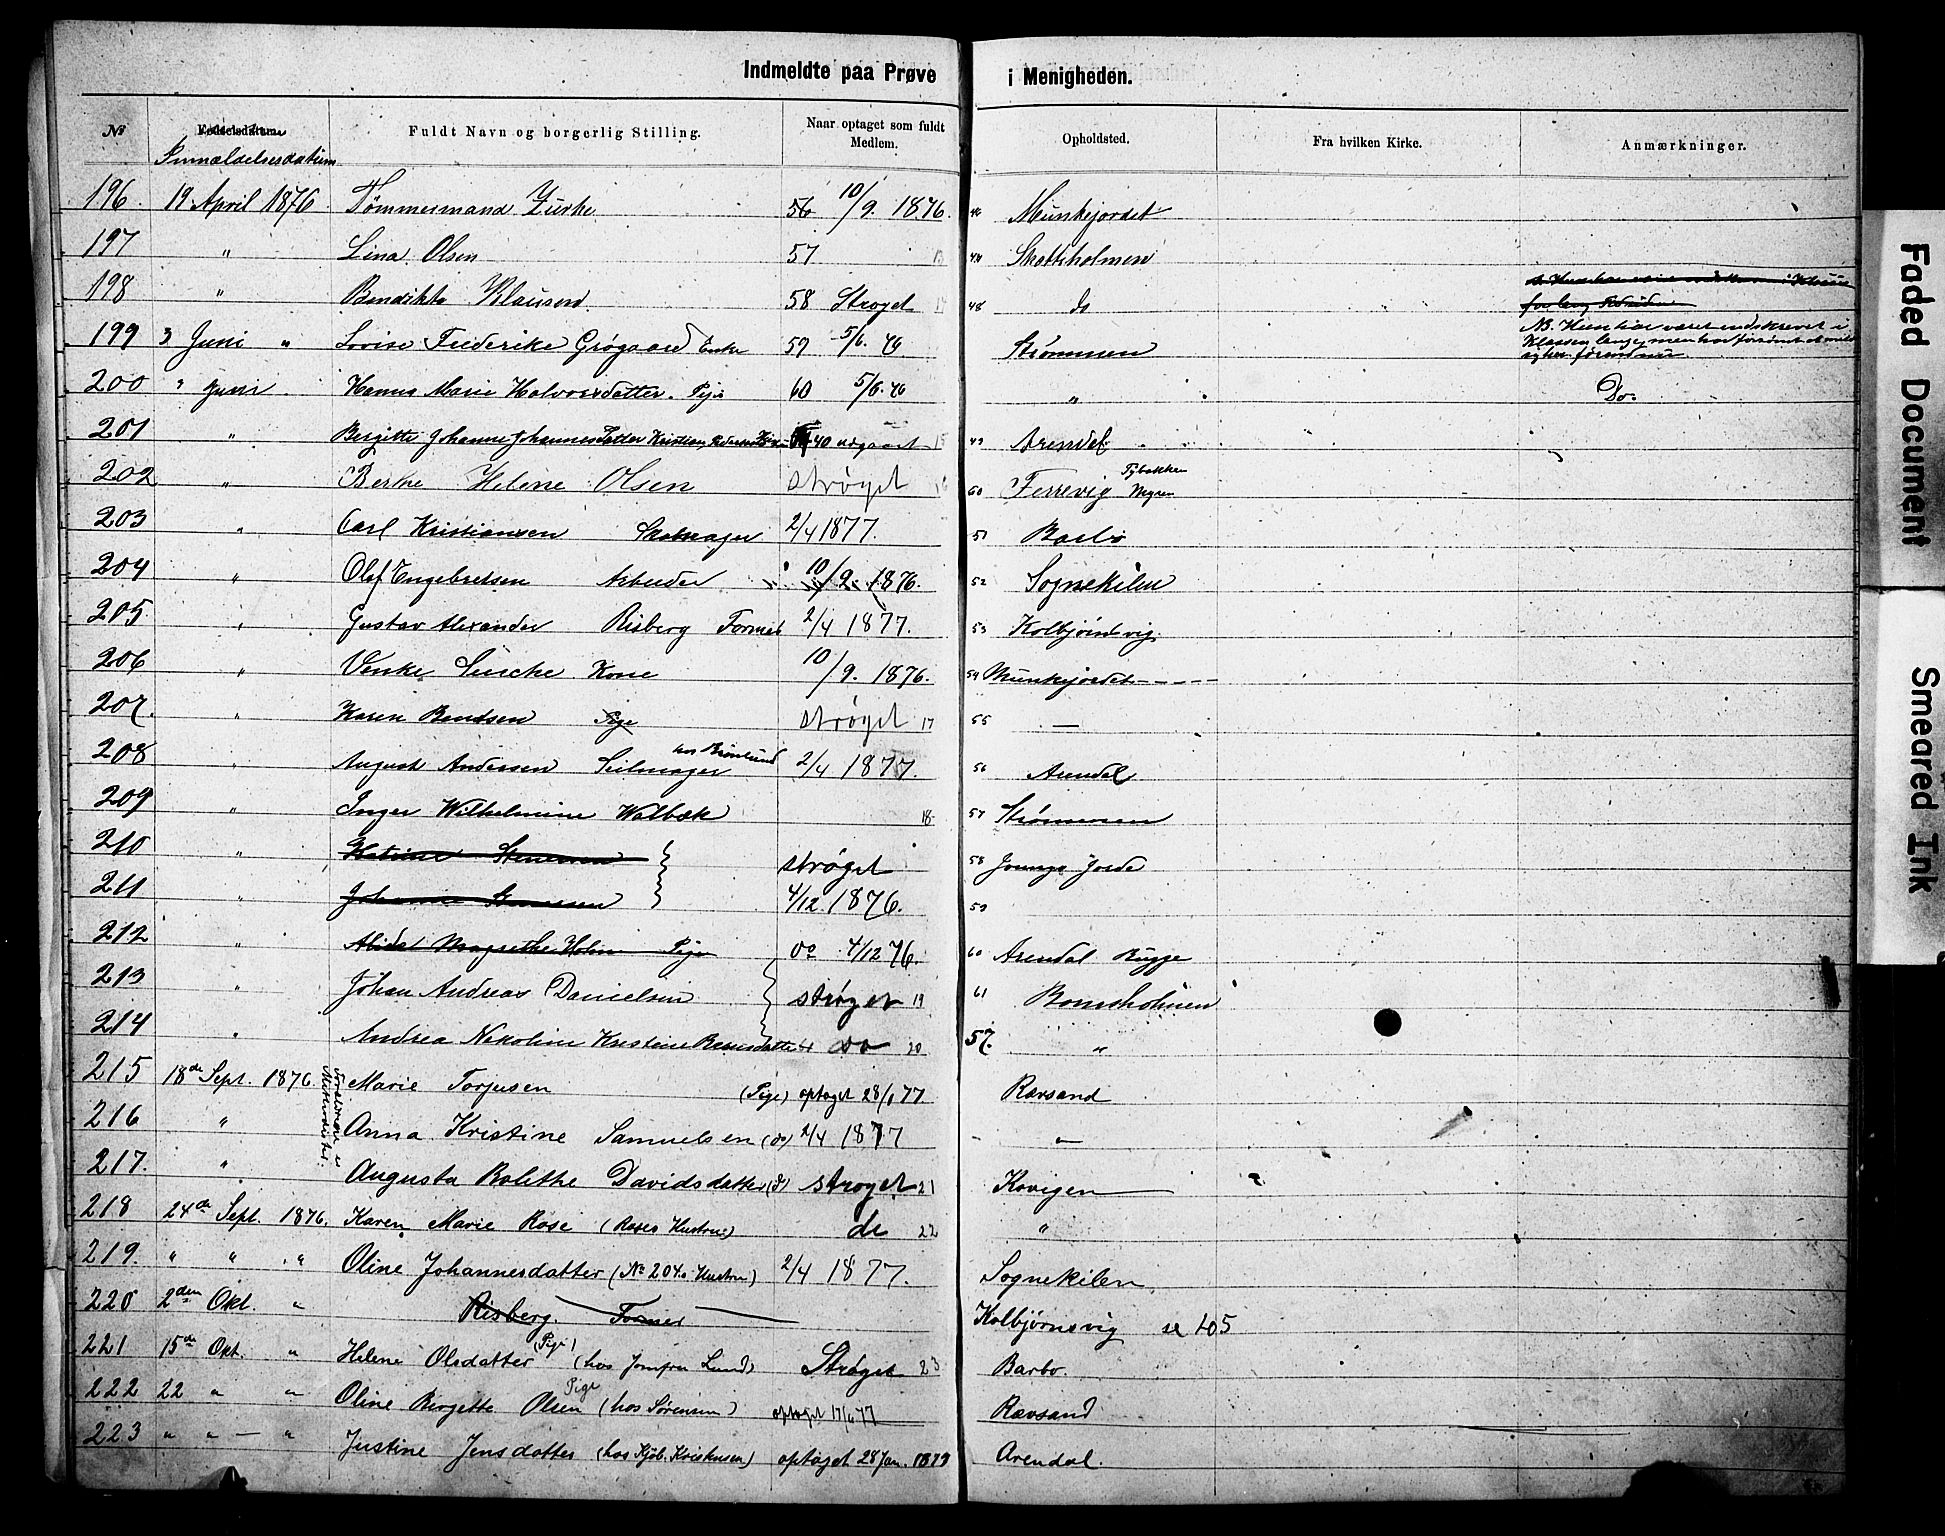 Indmeldte paa Prøve i Menigheden.
No Fødselsdatum. Fuldt Navn og borgerlig Stilling. Naar optaget som fuldt Medlem. Opholdsted. Fra hvilken Kirke. Anmærkninger.
Inmældelsesdatum
196. 19 April 1876. Tømmermand Zurke 56 10/9. 1876. Munkejordet
197 " Lina Olsen 57 Skotteholmen
198 " Bendikte Klausen 58 Strøget 48 do
199 3 Juni " Lovise Frederike Grøgaard Enke 59 5/6. 76 Strømmen NB. Hun har været indskrevet i
Klassen længe, men har forsømt at
200 " Juni Hanna Marie Halvorsdatter. Pige 60 5/6. 76 " Do.
201 " Bergitte Johanne Johannesdatter 40 udgaaet 49 Arendal
202 " Berthe Helene Olsen strøget 16 50 Ferrevig Tybakken Myren
203 " Carl Kristiansen Skomager 2/4 1877. 51 Barbo
204 " Olaf Engebretsen Arbeider 10/9. 1876. 52 Sognekilen
205. " Gustav Alexander Risberg Former 2/4 1877. 53 Kolbjørnsvig.
206 " Venke Kone 10/9. 1876. 54 Munkejordet
207. " Karen Bendsen Pige strøget 17 55 —
208 " August Andersen Seilmager hos Brønlund 2/4 1877. 56 Arendal
209 " Inger Wilhelmine Walbæk 18 57 Strømmen
210 " Katrine strøget 58 Joungs Jorde
211 " Johanne 4/12. 1876. 59
212 " Magrethe Holm Pige do 4/12 76. 60 Arendal Bugge
213 " Johan Andreas Danielsen strøget 19 61 Bomsholmen
214 " Andrea Nikoline Kristine do 20 57. "
215 18de Sept. 1876. Marie Torjusen (Pige) optaget 28/1 77 Ravsand
Forældrene er Methodister.
216 " Anna Kristine Samuelsen (do) 2/4 1877 "
217. " Augusta Bolethe Davidsdatter (d) strøget 21 Kovigen
218 24de Sept. 1876. Karen Marie Rose (Roses Hustru) do 22 "
219. " " " Oline Johannesdatter (No 204s Hustru) 2/4 1877. Sognekilen
220 2den Okt. " Risberg. Former Kolbjørnsvig se 205
221 15de Okt. " Helene Olsdatter (Pige) (hos Jomfru Lund) Strøget 23 Barbo.
222 22 " " Oline Bergette Olsen Pige (hos Sørensen) optaget 17/6 77 Ravsand
223 " " — " Justine Jensdatter (hos Kjøb. Kristensen) optaget 28 Jan. 1879 Arendal.
Faded Document
Smeared Ink